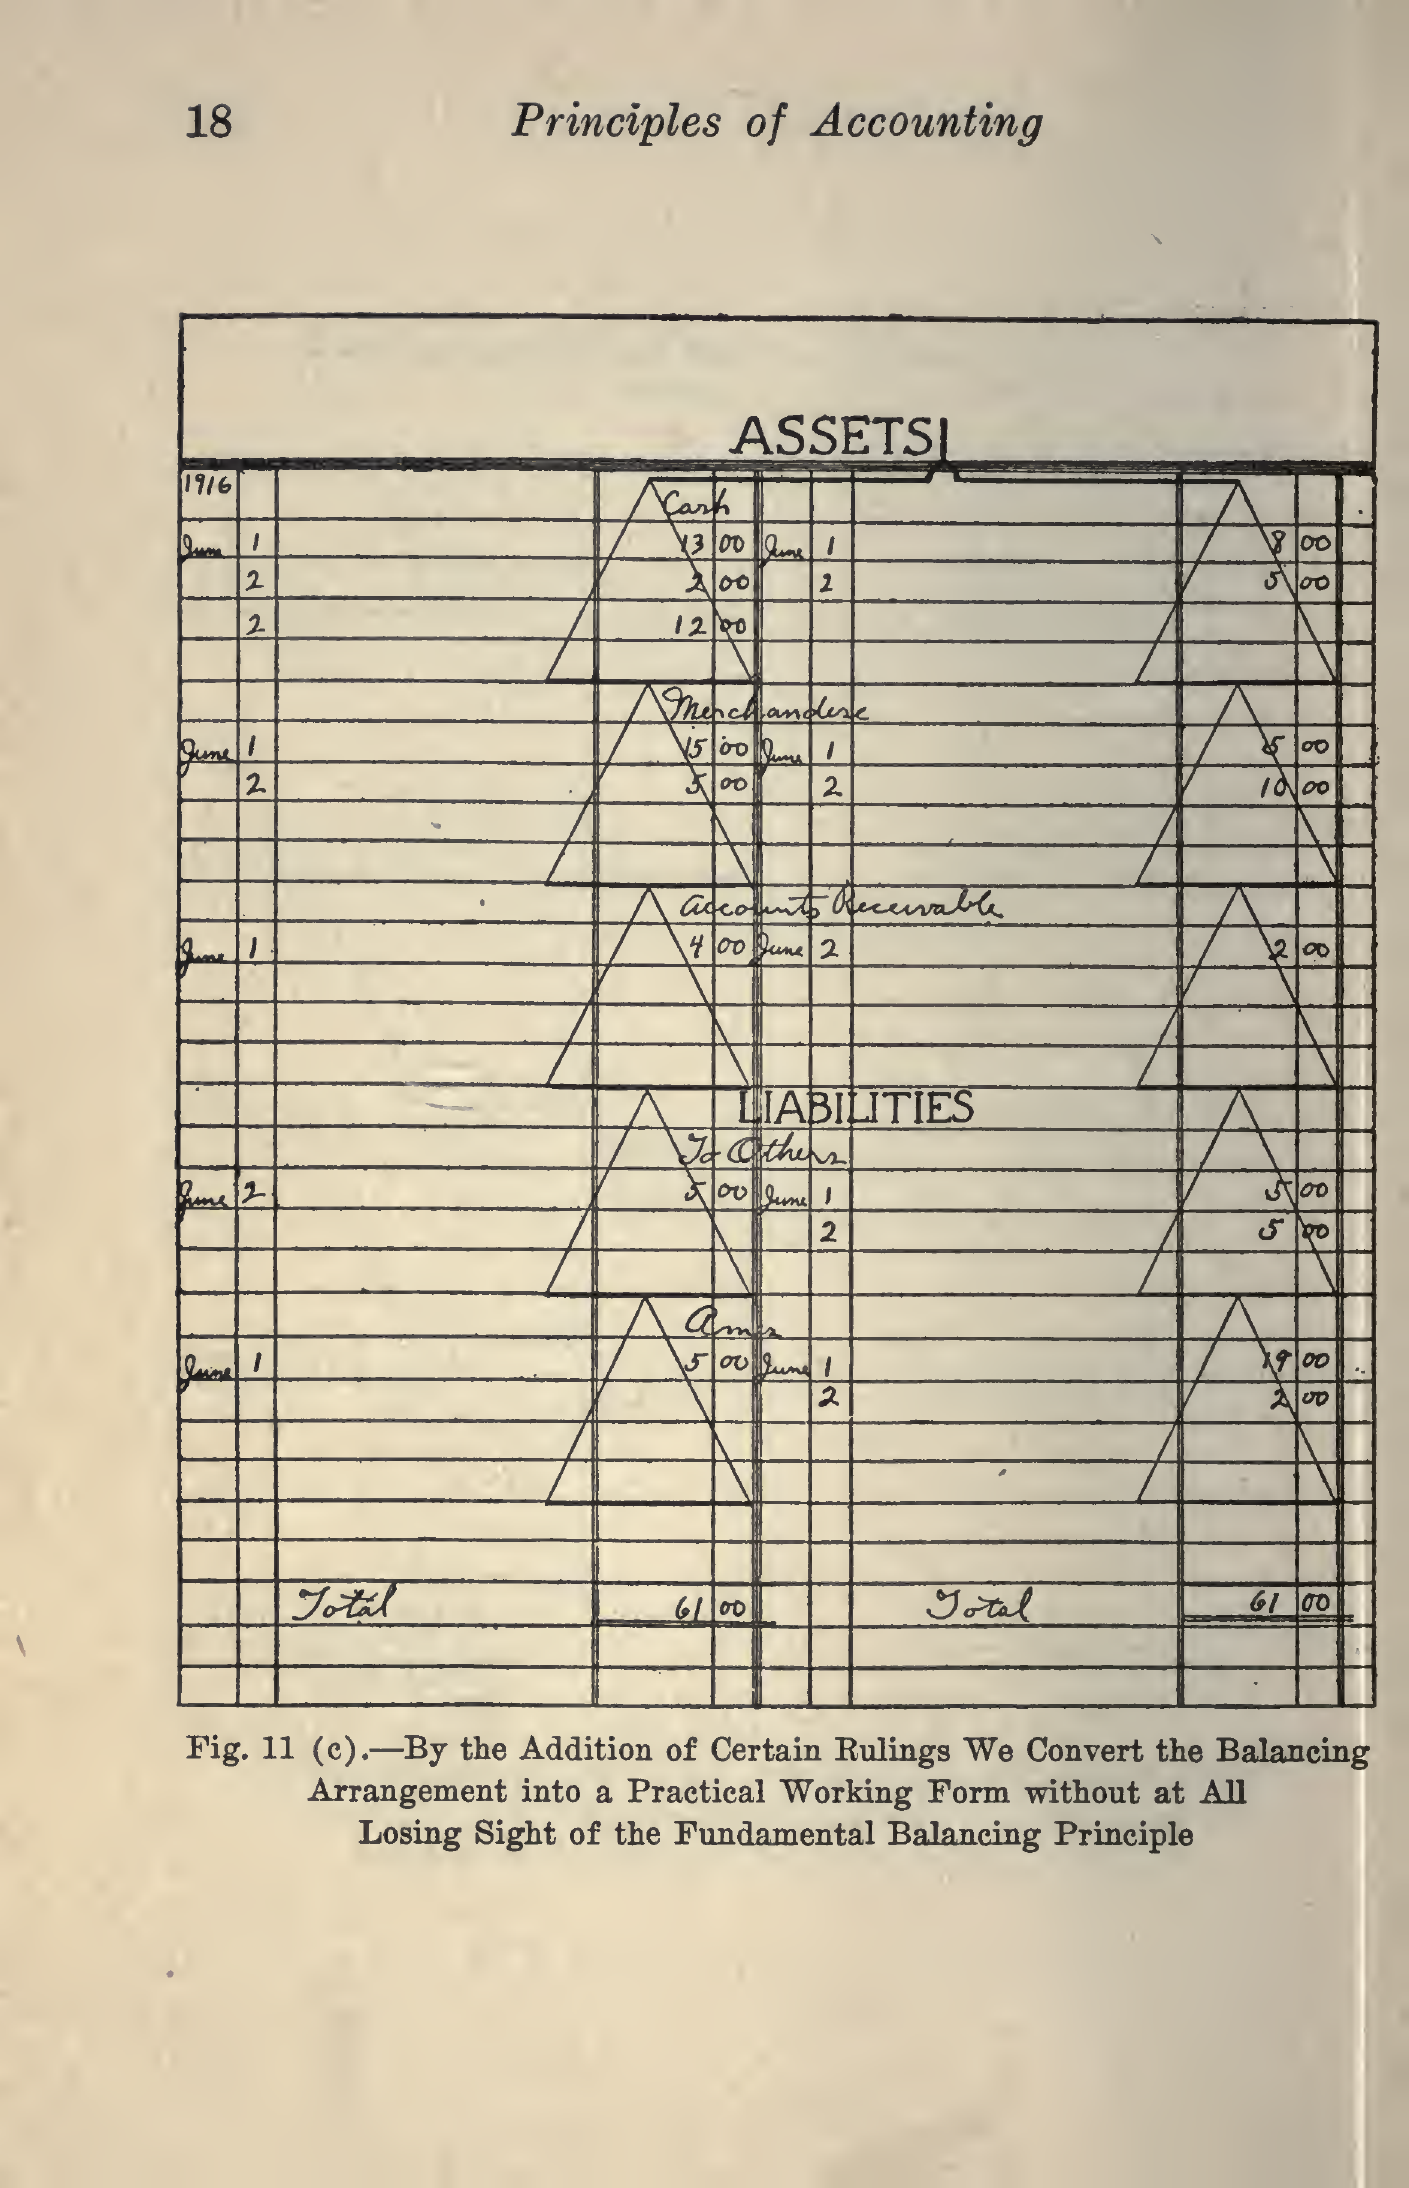 18 Principles of Accounting
ASSETS
1916
Cash
June 1 13 00 June 1 8 00
2 2 00 2 5 00
2 12 00
Merchandise
June 1 15 00 June 1 5 00
2 5 00 2 10 00
Accounts Receivable
June 1 4 00 June 2 2 00
LIABILITIES
To Others
June 2 5 00 June 1 5 00
2 5 00
Ames
June 1 5 00 June 1 19 00
2 2 00
Total 61 00 Total 61 00
Fig. 11 (c).—By the Addition of Certain Rulings We Convert the Balancing
Arrangement into a Practical Working Form without at All
Losing Sight of the Fundamental Balancing Principle